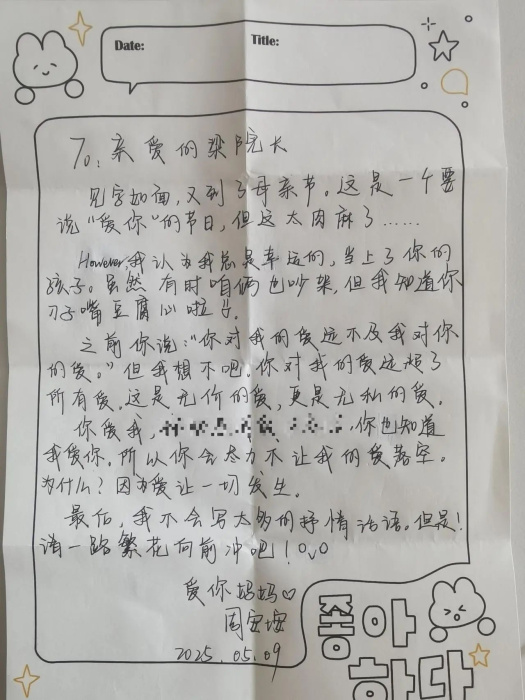 Date:
Title:
To: 亲爱的梁院长
见字如面，又到了母亲节。这是一个要
说“爱你”的节日，但这太肉麻了……
However，我认为我总是幸运的，当上了你的
孩子。虽然有时咱俩也吵架，但我知道你
刀子嘴豆腐心啦！
之前你说：“你对我的爱远不及我对你
的爱。”但我想不吧，你对我的爱远超了
所有爱，这是无价的爱，更是无私的爱。
你爱我，
你也知道
我爱你，所以你会尽力不让我的爱落空。
为什么？因为爱让一切发生。
最后，我不会写太多的抒情话语。但是！
请一路繁花向前冲吧！OvO
爱你妈妈♡
周安安
2025.05.09
좋아
하다